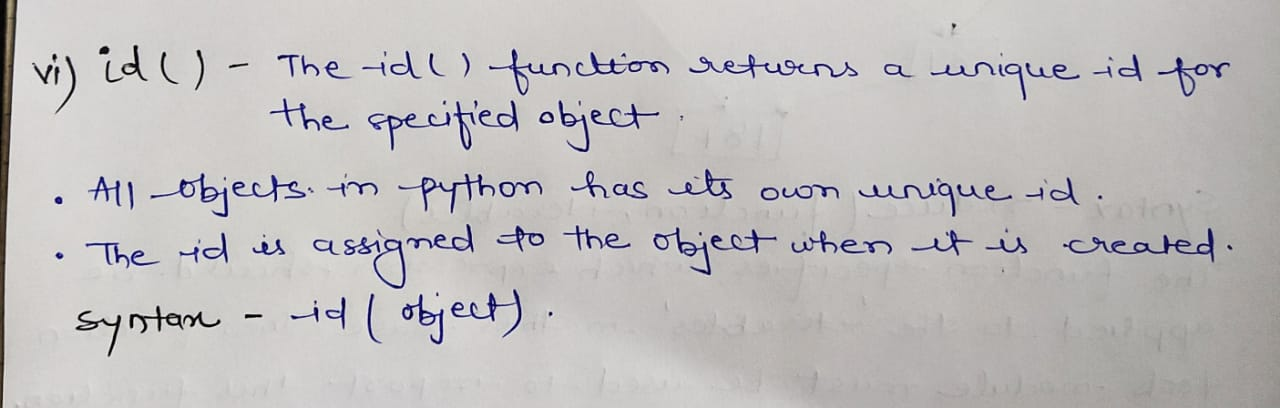 vi) id() - The id() function returns a unique id for
the specified object.
• All objects in python has its own unique id.
• The id is assigned to the object when it is created.
syntax - id(object).